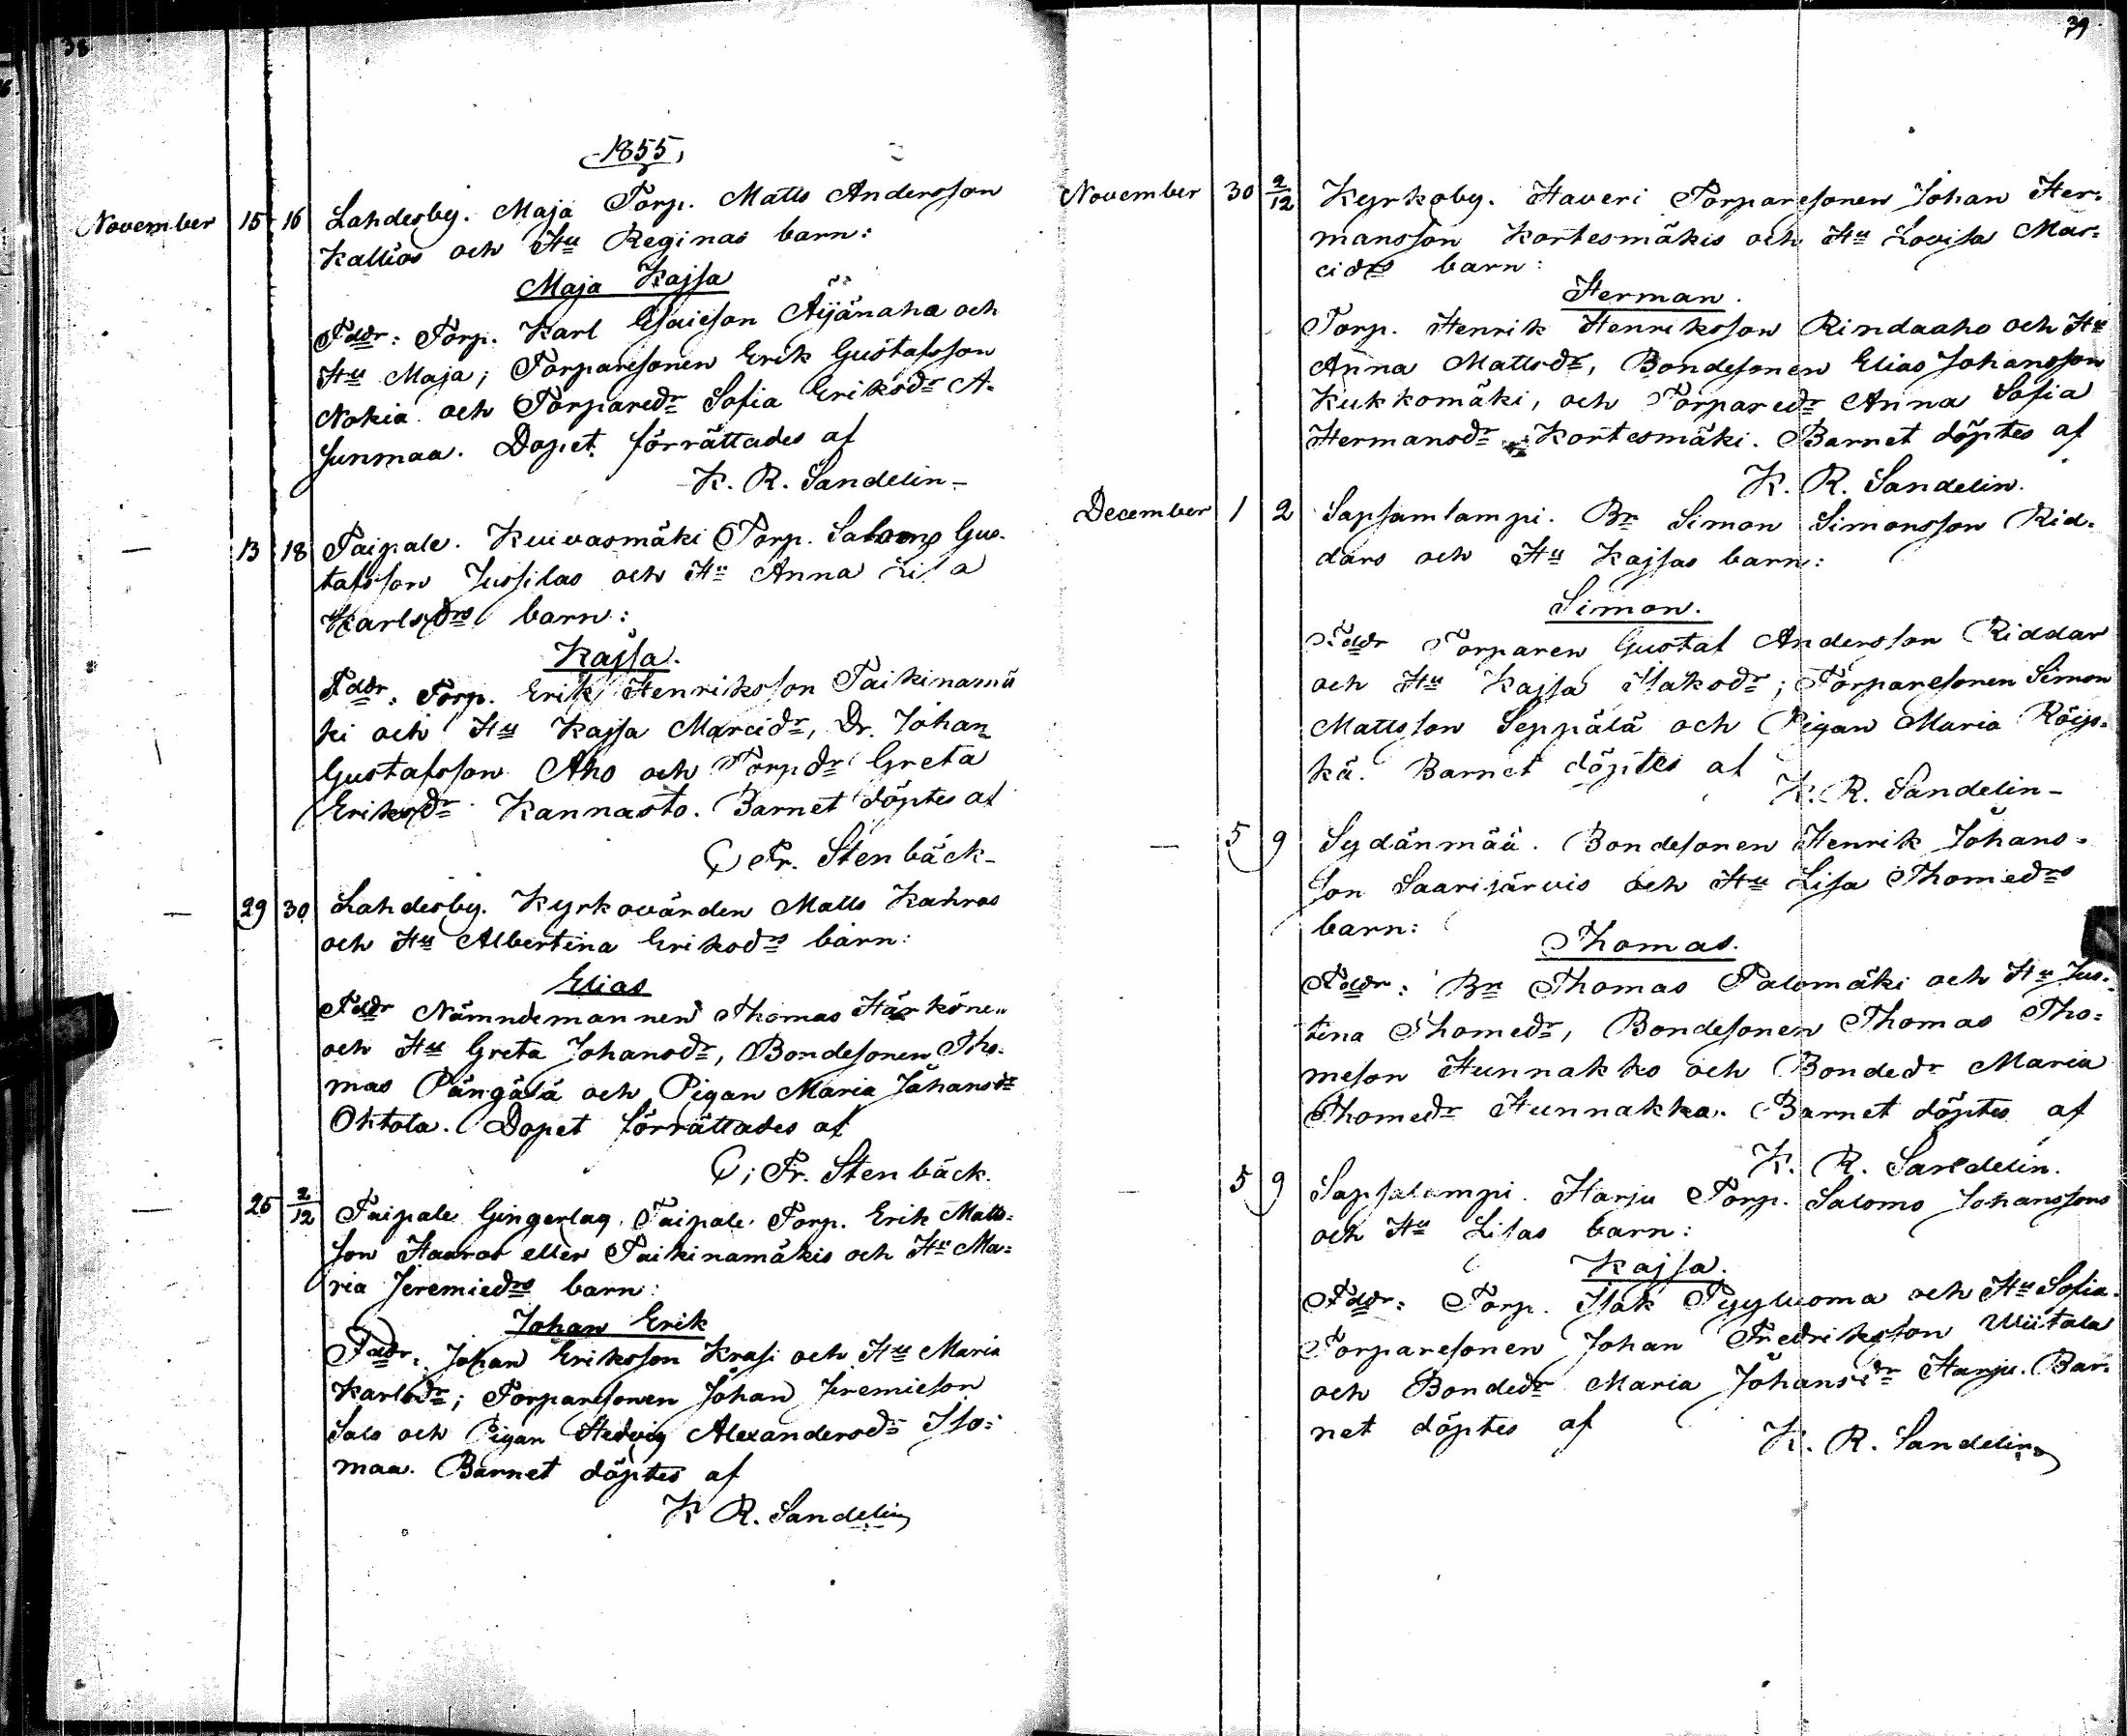 38
1855,
November 15 16 Lahdesby. Maja Torp. Matts Andersson
Kallios och Hu Reginas barn:
Maja Kajsa
Fddr: Torp. Karl Esaieson Äijänaho och
Hu Maja; Torparesonen Erik Gustafsson
Nokia och Torparedr Sofia Eriksdr A-
junmaa. Dopet förrättades af
K. R. Sandelin-
— 13 18 Taipale. Kuivasmäki Torp. Salomo Gus-
tafsson Jussilas och Hu Anna Lisa
Karlsdrs barn:
Kajsa.
Fddr: Torp. Erik Henriksson Taikinamä
ki och Hu Kajsa Marcidr, Dr. Johan
Gustafsson Aho och Torpdr Greta
Eriksdr Kannasto. Barnet döptes af
C. Fr. Stenbäck-
— 29 30 Lahdesby. Kyrkovärden Matts Kahras
och Hu Albertina Eriksdrs barn:
Elias
Fddr Nämndemannen Thomas Härkönen
och Hu Greta Johansdr, Bondesonen Tho-
mas Pängälä och Pigan Maria Johansdr
Ohtola. Dopet förrättades af
C. Fr. Stenbäck.
— 25 2/12 Taipale Gingerlag. Taipale. Torp. Erik Matts-
son Haaras eller Taikinamäkis och Hu Ma=
ria Jeremiedrs barn:
Johan Erik
Fddr: Johan Eriksson Krasi och Hu Maria
Karlsdr; Torparesonen Johan Jeremieson
Salo och Pigan Hedvig Alexandersdr Iso=
maa. Barnet döptes af
K R. Sandelin
39
November 30 2/12 Kyrkoby. Haveri Torparesonen Johan Her-
mansson Kortesmäkis och Hu Lovisa Mar=
cidrs barn:
Herman.
Torp. Henrik Henriksson Rindaaho och Hu
Anna Mattsdr, Bondesonen Elias Johansson
Kukkomäki, och Torparedr Anna Sofia
Hermansdr Kortesmäki. Barnet döptes af
K. R. Sandelin.
December 1 2 Sapsamlampi. Br Simon Simonsson Rid-
dars och Hu Kajsas barn:
Simon.
Fddr Torparen Gustaf Andersson Riddar
och Hu Kajsa Isaksdr; Torparesonen Simon
Mattsson Seppälä och Pigan Maria Röip-
kä. Barnet döptes af
K. R. Sandelin-
— 5 9 Sydänmää. Bondesonen Henrik Johans-
son Saarijärvis och Hu Lisa Thomedrs
barn:
Thomas.
Fddr: Br Thomas Palomäki och Hu Jus-
tina Thomedr, Bondesonen Thomas Tho-
meson Hunnakko och Bondedr Maria
Thomedr Hunnakka. Barnet döptes af
K. R. Sandelin.
— 5 9 Sapsalampi. Harju Torp. Salomo Johanssons
och Hu Lisas barn:
Kajsa.
Fddr: Torp. Isak Pyyluoma och Hu Sofia.
Torparesonen Johan Fredriksson Wiitala
och Bondedr Maria Johansdr Harju. Bar-
net döptes af
K. R. Sandelin